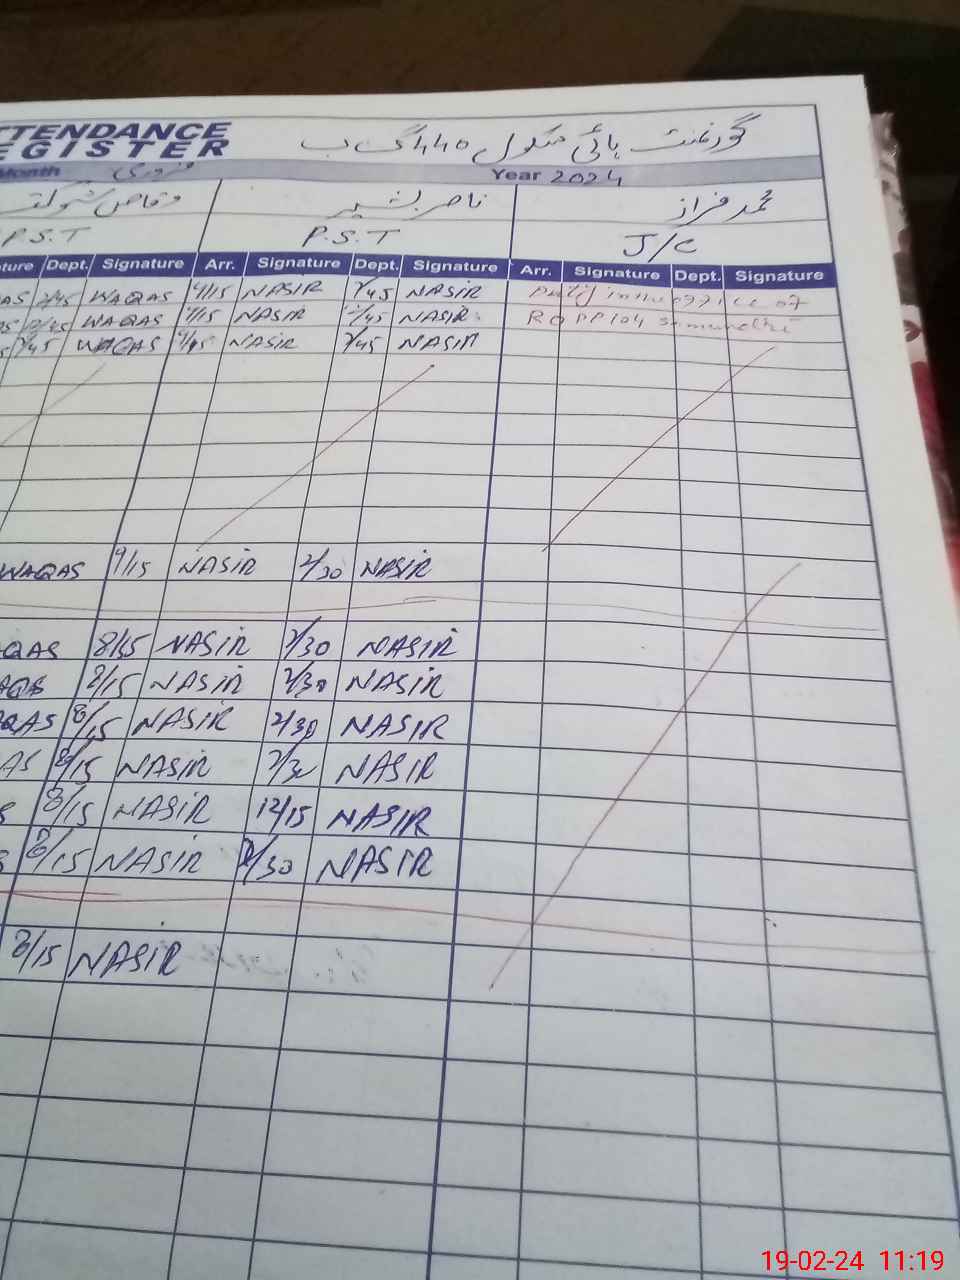 ATTENDANCE
REGISTER
گورنمنٹ ہائی سکول 440 گ ب
Month فروری Year 2024
وقاص شوکت ناصر بشیر محمد فراز
P.S.T P.S.T J/C
Dept. Signature Arr. Signature Dept. Signature Arr. Signature Dept. Signature
WAQAS 9/15 NASIR 2/45 NASIR office of
WAQAS NASIR 2/45 NASIR PP 104
WAQAS NASIR 2/45 NASIR
WAQAS 9/15 NASIR 2/30 NASIR
8/15 NASIR 2/30 NASIR
8/15 NASIR 2/30 NASIR
8/15 NASIR 2/30 NASIR
8/15 NASIR 2/30 NASIR
8/15 NASIR 12/15 NASIR
8/15 NASIR 2/30 NASIR
8/15 NASIR
19-02-24 11:19